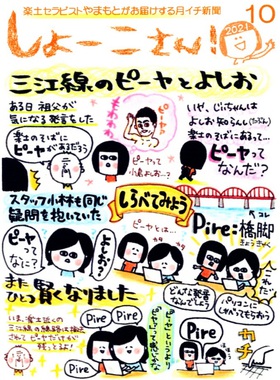 楽土セラピストやまもとがお届けする月イチ新聞
しょーこさん!
2021
10
三江線のピーヤとよしお
ある日 祖父が
気になる発言をした
楽土のそばに
ピーヤがあるだろう
もわわん
ピーヤって
小島よしお…?
いや、じいちゃんは
よしお知らんし(たぶん)
楽土のそばにあるって…
ピーヤって
なんだ?
スタッフ小林も同じ
疑問も抱いていた
しらべてみよう
ピーヤって
なに?
よしお?
ピーヤとは…
Pire:橋脚
きょうきゃく
コレ
どんな発音
なんでしょう?
パソコンに
しゃべってもらおう
カチ
Pire
Pire
Pire
Pire
また
ひとつ賢くなりました
いま、楽土近くの
三江線の線路は撤去
されてピーヤだけが
残ってるよ!